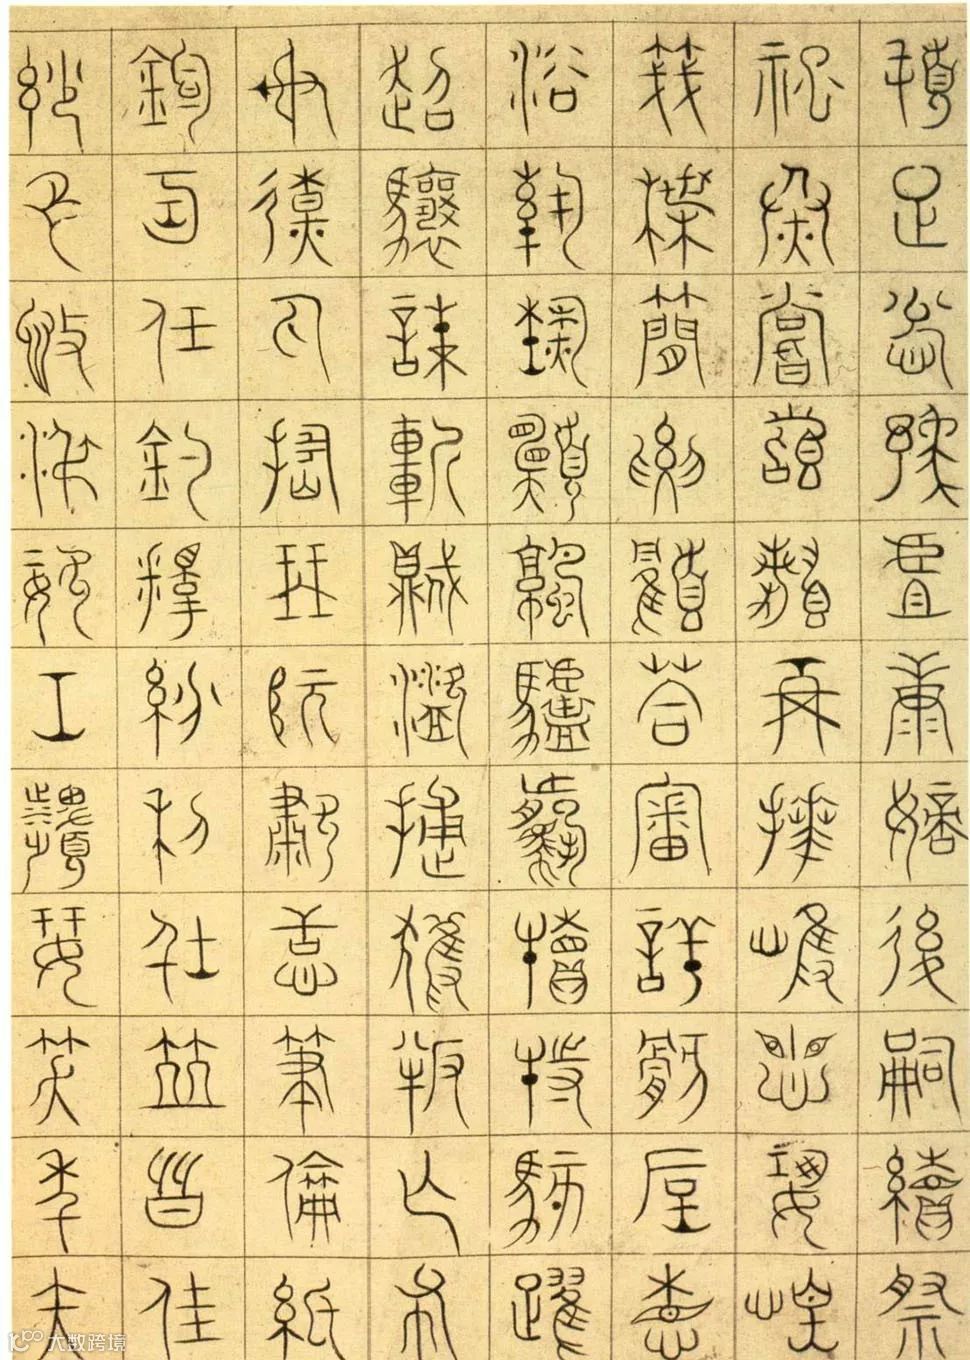 頓足悅豫且康嫡後嗣續祭
祀烝嘗稽顙再拜悚懼恐惶
牋牒簡要顧答審詳骸垢想
浴執熱願涼驢騾犢特駭躍
超驤誅斬賊盜捕獲叛亡布
射僚丸嵇琴阮嘯恬筆倫紙
鈞巧任釣釋紛利俗並皆佳
妙毛施淑姿工顰妍笑年矢
大数跨境